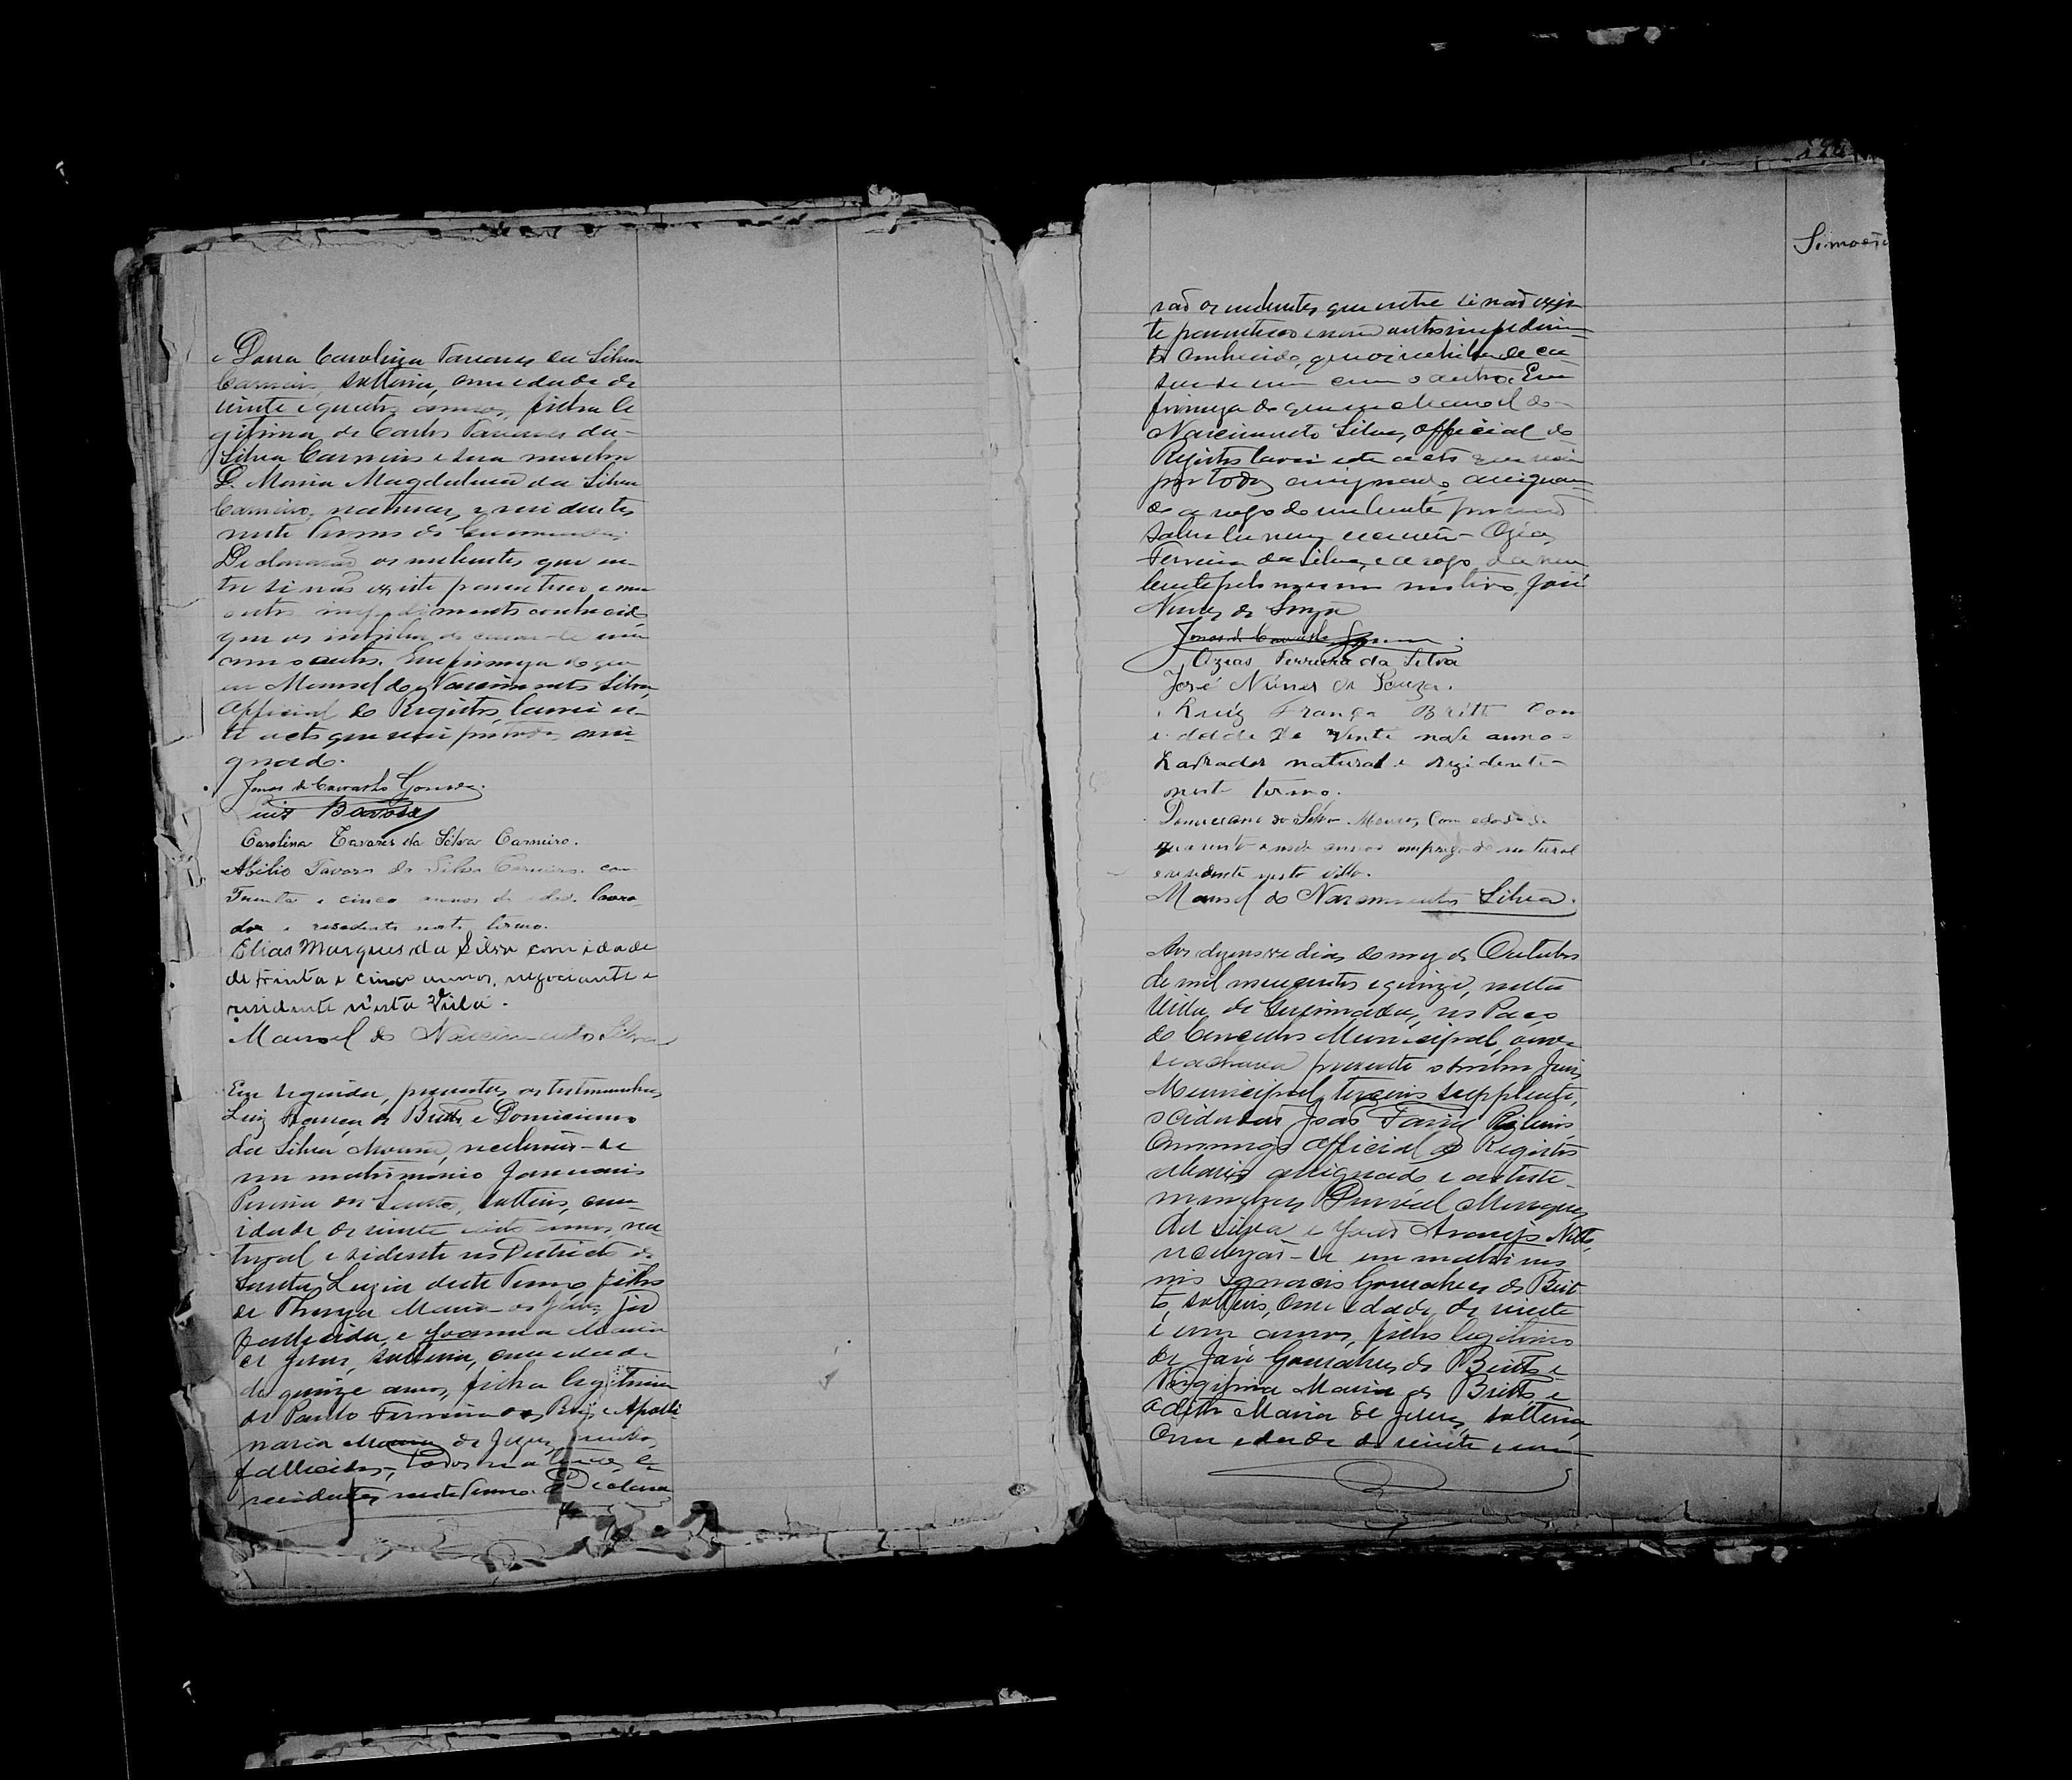 e Dona Carolina Tavares da Silva
Carneiro, solteira, com edade de
vinte e quatro annos, filha le
gitima de Carlos Tavares da
Silva Carneiro e sua mulher
D. Maria Magdalena da Silva
Carneiro, naturaes e residentes
neste Termo de
Declararão os nubentes que en-
tre si não existe parentesco e nem
outro impedimento conhecido
que os inhiba de casar-se um
com o outro. Em firmeza do que
eu Manoel do Nascimento Silva
Official do Registro, lavrei es-
te acto que vai por todos assi-
gnado.
Jonas de Carvalho Gomes.
Luiz Barbosa
Carolina Tavares da Silva Carneiro.
Abilio Tavares da Silva Carneiro. com
Trinta e cinco annos de edade. lavra-
dor e residente neste termo.
Elias Marques da Silva com idade
de trinta e cinco annos, negociante e
residente n'esta Villa.
Manoel do Nascimento Silva
Em seguida, presentes as testemunhas
Luiz França de Britto e Domiciano
da Silva Moura, receberão-se
em matrimonio Januario
Pereira dos Santos, solteiro, com
idade de vinte e oito annos, na
tural e residente no Districto de
Santa Luzia deste Termo, filho
de Thereza Maria de Jesus, já
fallecida, e Joanna Maria
de Jesus, solteira, com edade
de quinze annos, filha legitima
de Paulo Ferreira dos Reis e Apolli
naria Maria de Jesus,
fallecidos, todos naturaes e
residentes neste Termo. Declara
Simões
rão os nubentes que entre si não exis
te parentesco e nem outro impedimen
to conhecido, que os inhiba de ca-
sar-se um com o outro. Em
firmeza do que eu Manoel do
Nascimento Silva, official do
Registro lavrei este acto que vai
por todos assignado, assignan-
do a rogo do nubente por não
saber ler nem escrever Ozias
Ferreira da Silva, e a rogo da nu
bente pelo mesmo motivo José
Nunes de Souza
Jonas de Carvalho Gomes.
Ozias Ferreira da Silva
José Nunes de Souza.
Luiz França Britto Com
idade de Vinte nove anno
Lavrador natural e rezidente
neste termo.
Domiciano da Silva Moura, Com edade de
quarenta e nove annos empregado natural
e residente nesta villa.
Manoel do Nascimento Silva.
Aos dezenove dias do mez de Outubro
de mil novecentos e quinze, nesta
Villa de Queimadas, no Paço
do Conselho Municipal, onde
se achava presente o senhor Juiz
Municipal, terceiro supplente,
cidadão João
commigo official do Registro
abaixo assignado e as teste-
munhas Durval Marques
da Silva e João Araujo Netto,
receberão-se em matrimo
nio Ignacio Gonsalves de Brit
to, solteiro, com edade de vinte
e um annos, filho legitimo
de José Gonsalves de Britto e
Virginia Maria de Britto e
Edith Maria de Jesus, solteira,
com edade de vinte e um